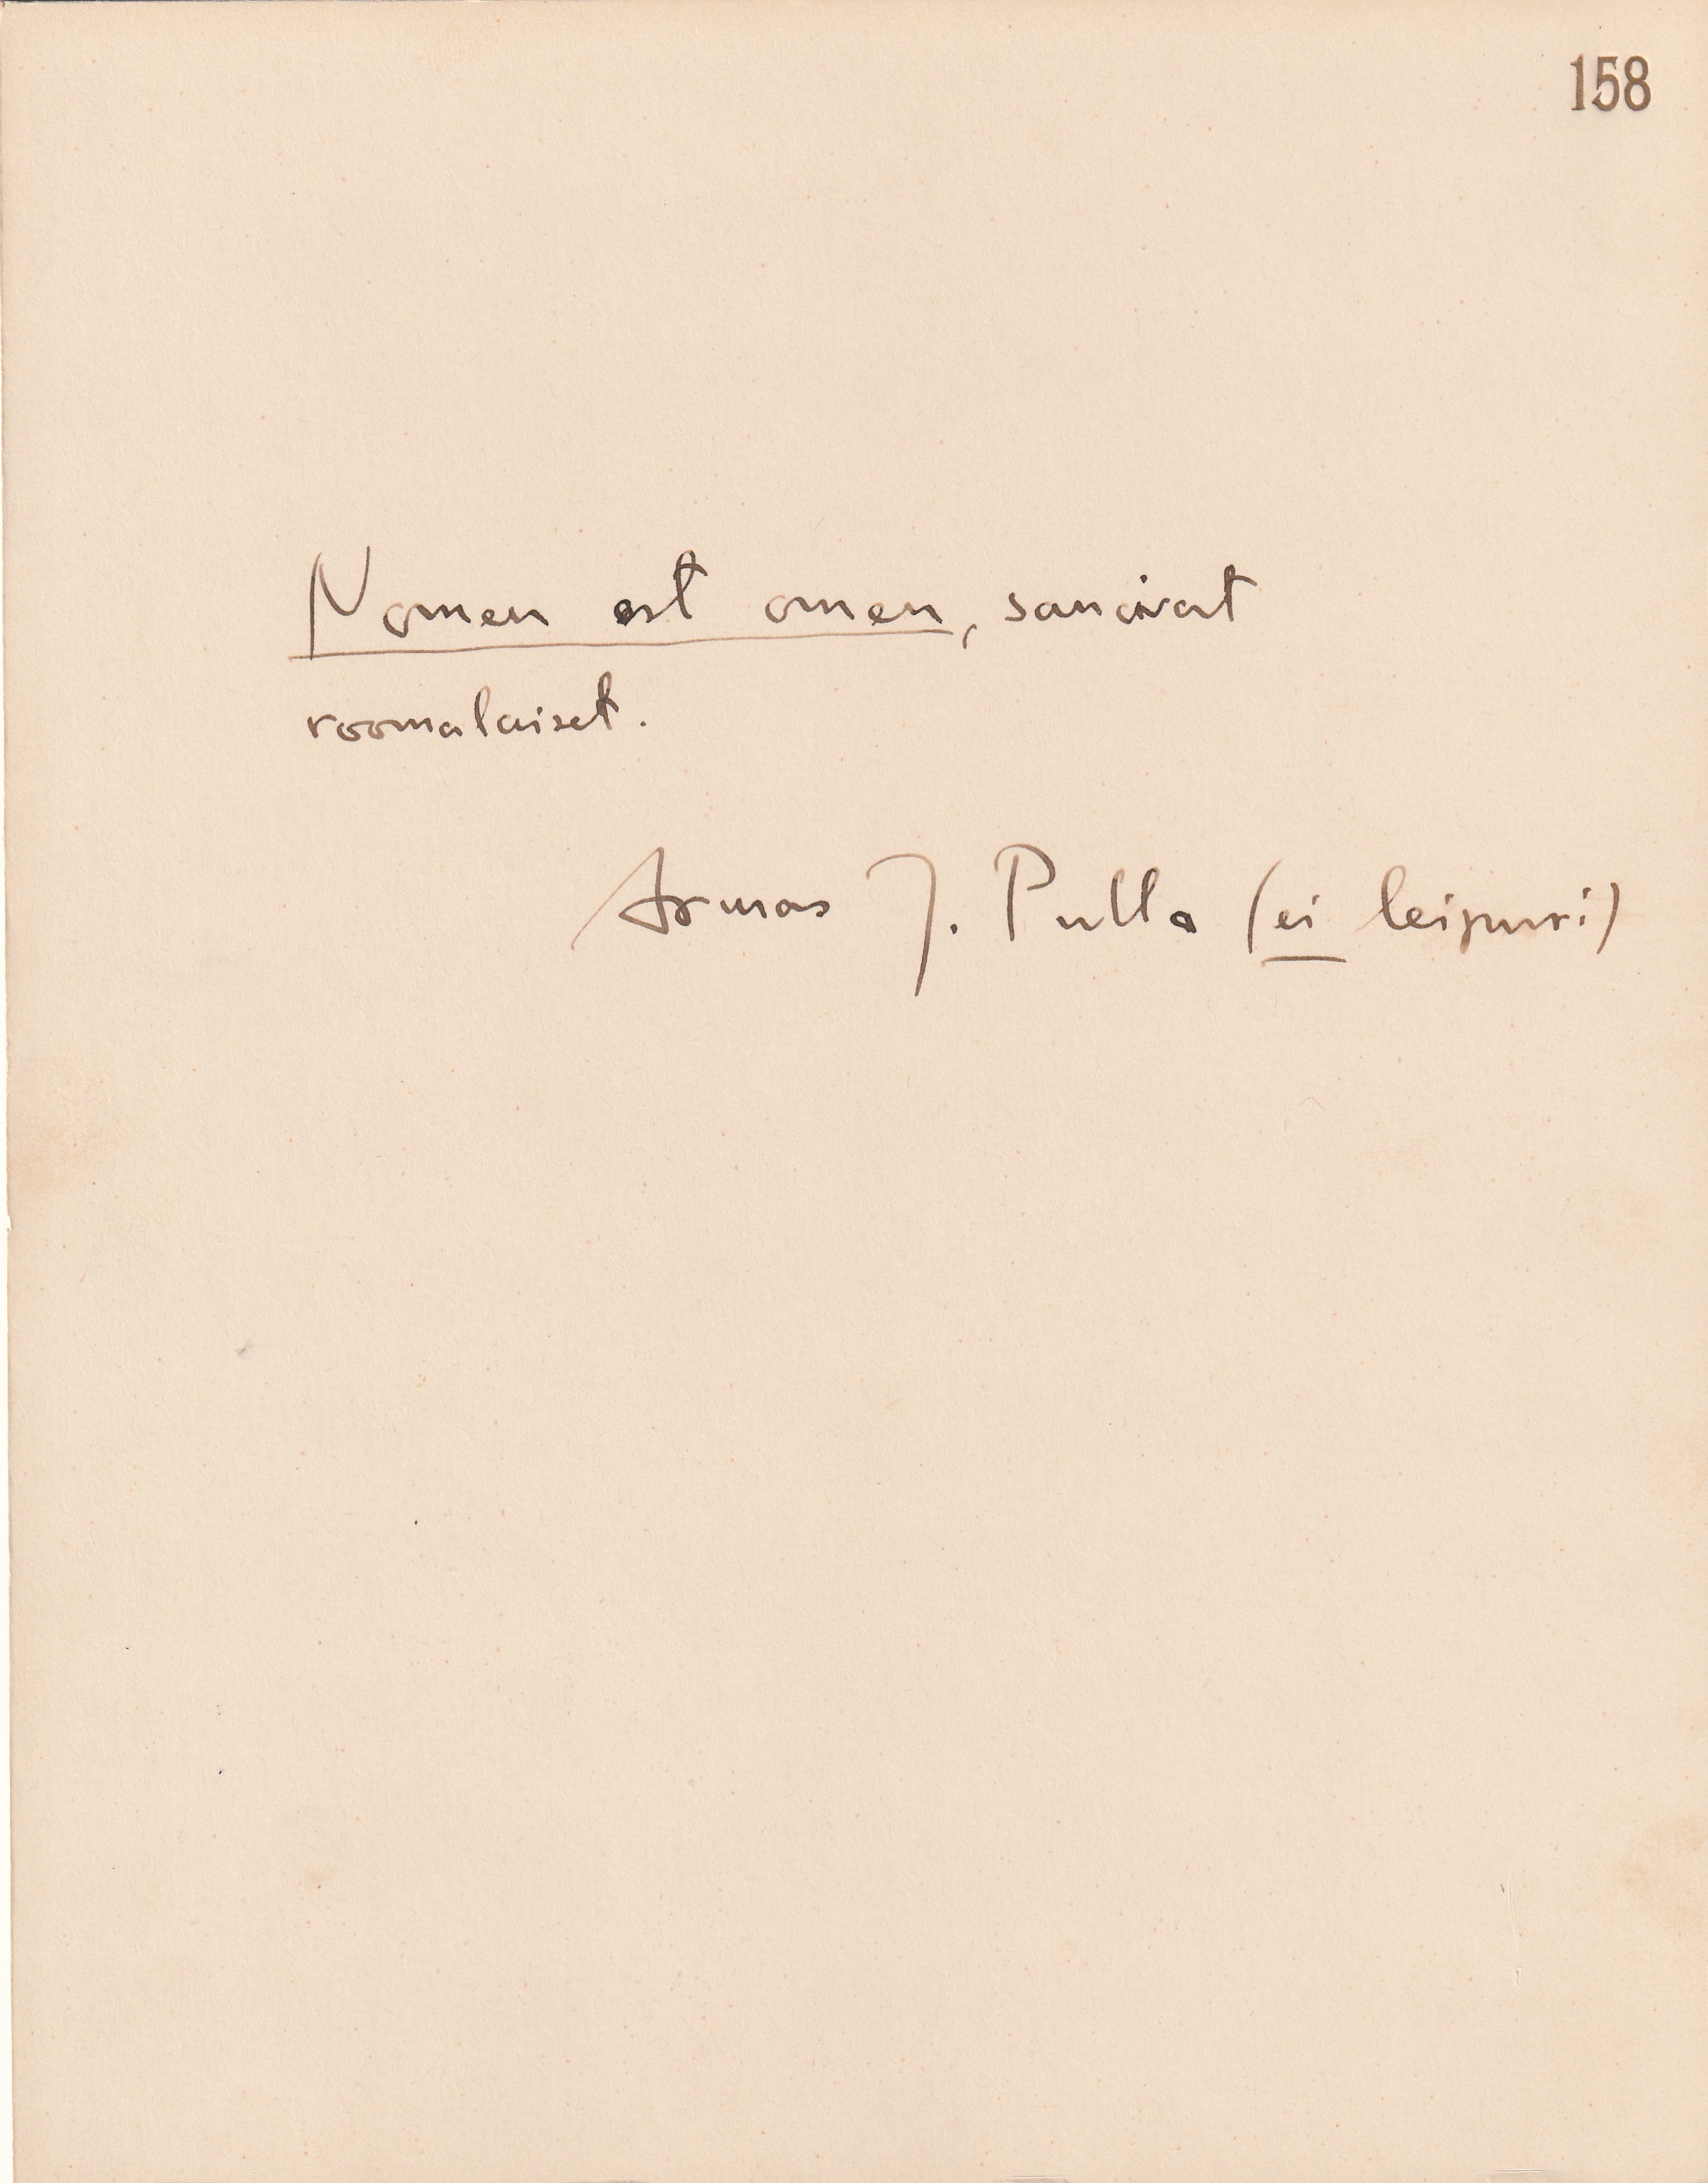 158
Nomen est omen, sanoivat
roomalaiset.
Armas J. Pulla (ei leipuri)